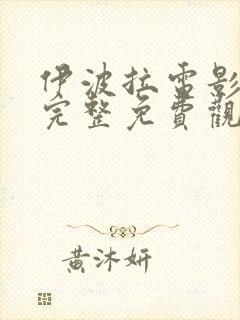 伊波拉雷影
完整免費觀
黃沐妍